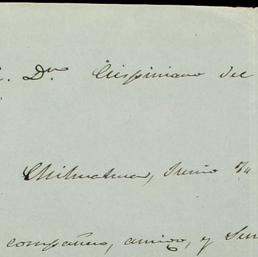 Dn Crispiniano del
Chihuahua, Junio
compañero, amigo, y Señ